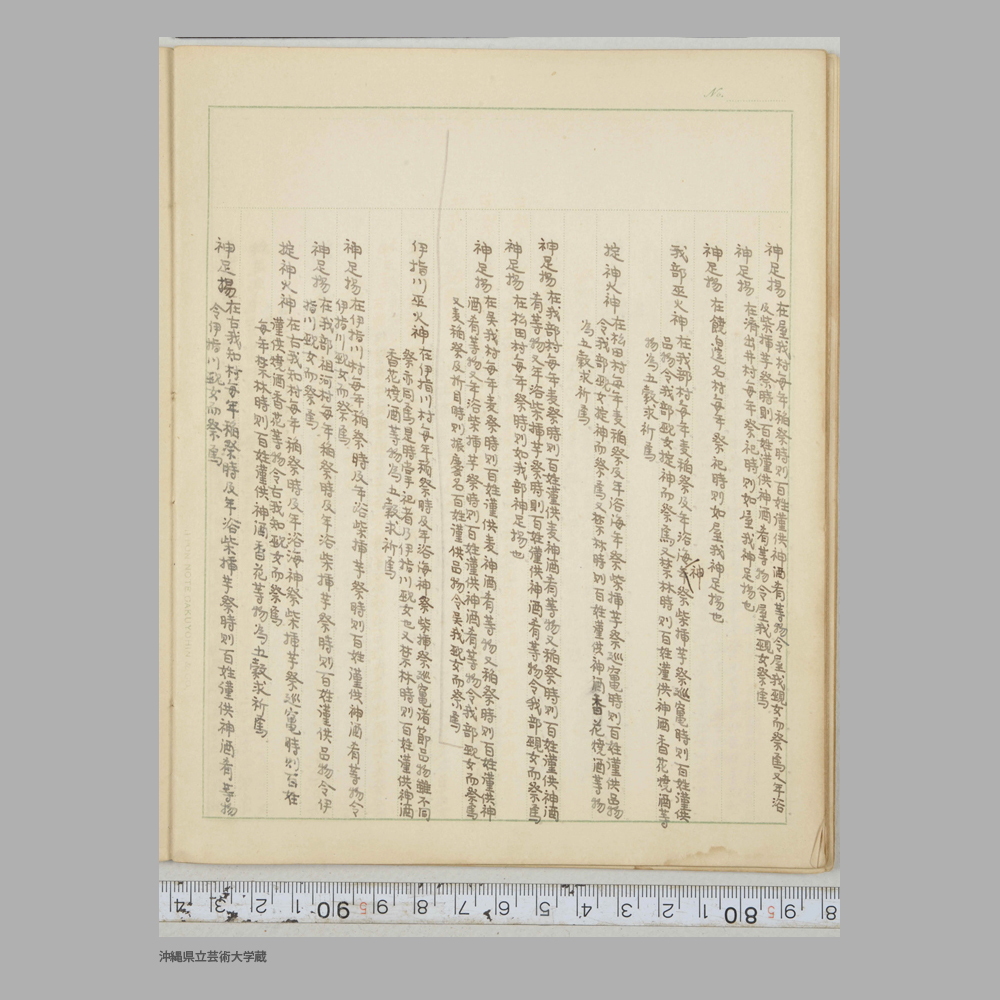 No.
神足揚 在屋我村每年稲祭時則百姓謹供神酒肴等物令屋我覡女而祭焉又年浴
及柴揷芋祭時則百姓謹供神酒肴等物令屋我覡女祭焉
神足揚 在濟出井村每年祭祀時則如屋我神足揚也
神足揚 在饒邊名村每年祭祀時則如屋我神足揚也
我部巫火神 在我部村每年麦稲祭及年浴海神祭柴揷芋祭巡竃時則百姓謹供
品物令我部覡女掟神而祭焉又禁林時則百姓謹供神酒香花焼酒等
物為五穀求祈焉
掟神火神 在松田村每年麦稲祭及年浴海年祭柴揷芋祭巡竃時則百姓謹供品物
令我部覡女掟神而祭焉又禁林時則百姓謹供神酒香花焼酒等物
為五穀求祈焉
神足揚 在我部村每年麦祭時則百姓謹供麦神酒肴等物又稲祭時則百姓謹供神酒
肴等物又年浴柴揷芋祭時則百姓謹供神酒肴等物令我部覡女而祭焉
神足揚 在松田村每年祭時則如我部神足揚也
神足揚 在呉我村每年麦祭時則百姓謹供麦神酒肴等物又稲祭時則百姓謹供神
酒肴等物又年浴柴揷芋祭時則百姓謹供神酒肴等物令我部覡女而祭焉
又麦稲祭及折目時則振慶名百姓謹供品物令呉我覡女而祭焉
伊指川巫火神 在伊指川村每年稲祭時及年浴海神祭柴揷祭巡竃諸節品物雖不同
祭亦同焉是時掌祀者乃伊指川覡女也又禁林時則百姓謹供神酒
香花焼酒等物為五穀求祈焉
神足揚 在伊指川村每年稲祭時及年浴柴揷芋祭時則百姓謹供神酒肴等物令
伊指川覡女而祭焉
神足揚 在我部祖河村每年稲祭時及年浴柴揷芋祭時則百姓謹供品物令伊
指川覡女而祭焉
掟神火神 在古我知村每年稲祭時及年浴海神祭柴揷芋祭巡竃時則百姓
謹供焼酒香花等物令古我知覡女而祭焉
每年禁林時則百姓謹供神酒香花等物為五穀求祈焉
神足揚 在古我知村每年稲祭時及年浴柴揷芋祭時則百姓謹供神酒肴等物
令伊指川覡女而祭焉
沖縄県立芸術大学蔵